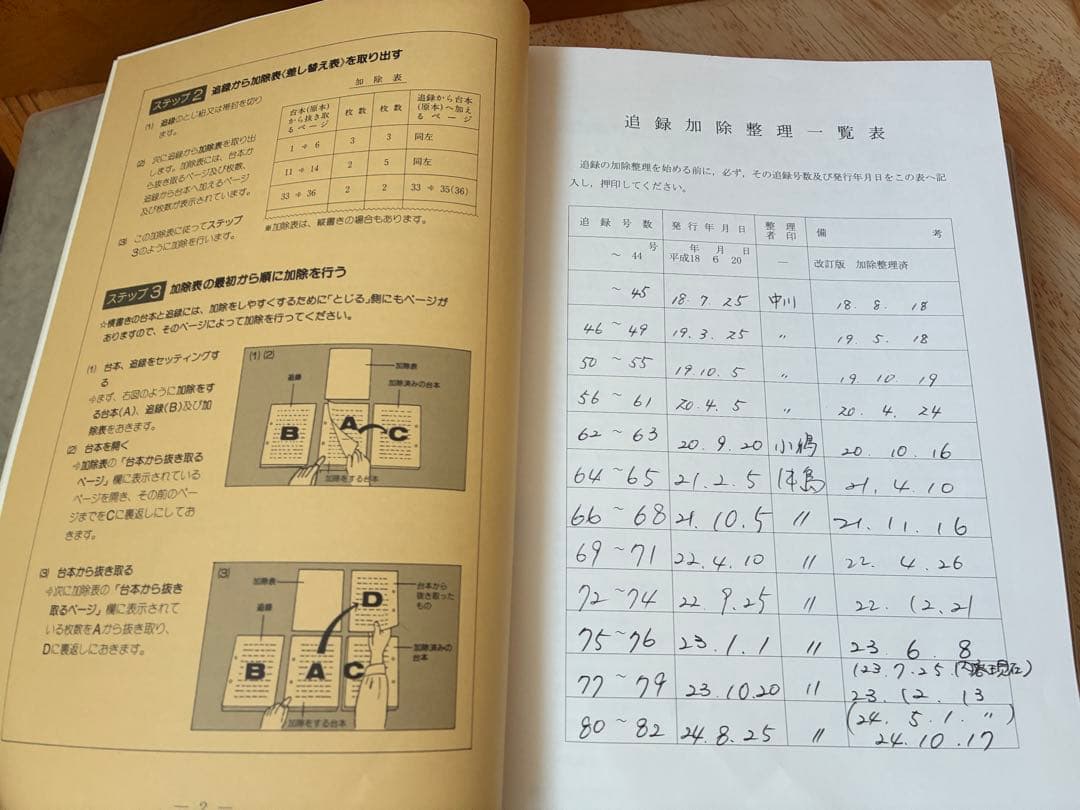 ステップ2 追録から加除表(差し替え表)を取り出す
(1) 追録のとじ紐又は帯封を切り
ます。
(2) 次に追録から加除表を取り出
します。加除表には、台本か
ら抜き取るページ及び枚数、
追録から台本へ加えるページ
及び枚数が表示されています。
(3) この加除表に従ってステップ
3のように加除を行います。
加除表
台本(原本)から抜き取るページ 枚数 枚数 追録から台本(原本)へ加えるページ
1÷6 3 3 同左
11÷14 2 5 同左
33÷36 2 2 33÷35(36)
※加除表は、縦書きの場合もあります。
ステップ3 加除表の最初から順に加除を行う
☆横書きの台本と追録には、加除をしやすくするために「とじる」側にもページが
ありますので、そのページによって加除を行ってください。
(1) 台本、追録をセッティングす
る
⇨まず、右図のように加除をす
る台本(A)、追録(B)及び加
除表をおきます。
(2) 台本を開く
⇨加除表の「台本から抜き取る
ページ」欄に表示されている
ページを開き、その前のペー
ジまでをCに裏返しにしてお
きます。
(1)(2)
加除表
追録
加除済みの台本
B A C
加除をする台本
(3) 台本から抜き取る
⇨次に加除表の「台本から抜き
取るページ」欄に表示されて
いる枚数をAから抜き取り、
Dに裏返しにおきます。
(3)
加除表
台本から
抜き取った
もの
追録
D
加除済みの
台本
B A C
加除をする台本
— 2 —
追録加除整理一覧表
追録の加除整理を始める前に,必ず,その追録号数及び発行年月日をこの表へ記
入し,押印してください。
追録号数 発行年月日 整理者印 備考
~44号 平成18年6月20日 — 改訂版 加除整理済
~45 18.7.25 中川 18.8.18
46~49 19.3.25 〃 19.5.18
50~55 19.10.5 〃 19.10.19
56~61 20.4.5 〃 20.4.24
62~63 20.9.20 小嶋 20.10.16
64~65 21.2.5 21.4.10
66~68 21.10.5 〃 21.11.16
69~71 22.4.10 〃 22.4.26
72~74 22.9.25 〃 22.12.21
75~76 23.1.1 〃 23.6.8
(23.7.25 内容現在)
77~79 23.10.20 〃 23.12.13
(24.5.1.〃)
80~82 24.8.25 〃 24.10.17